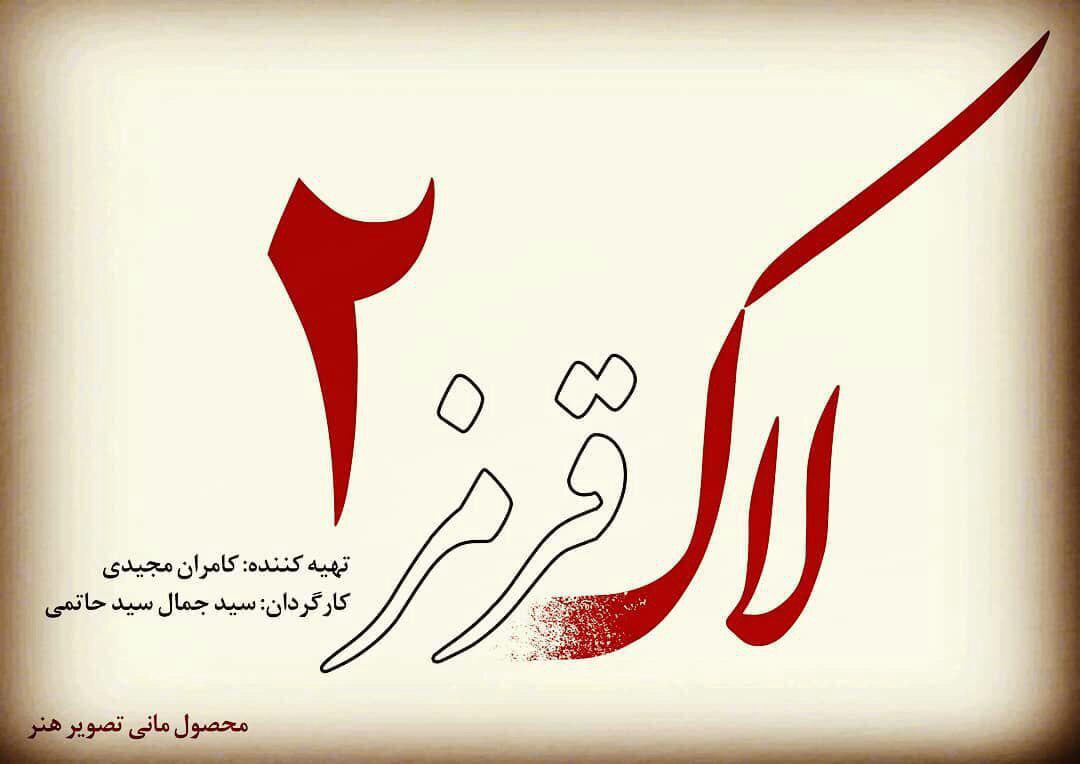 لاک قرمز ۲
تهیه کننده: کامران مجیدی
کارگردان: سید جمال سید حاتمی
محصول مانی تصویر هنر